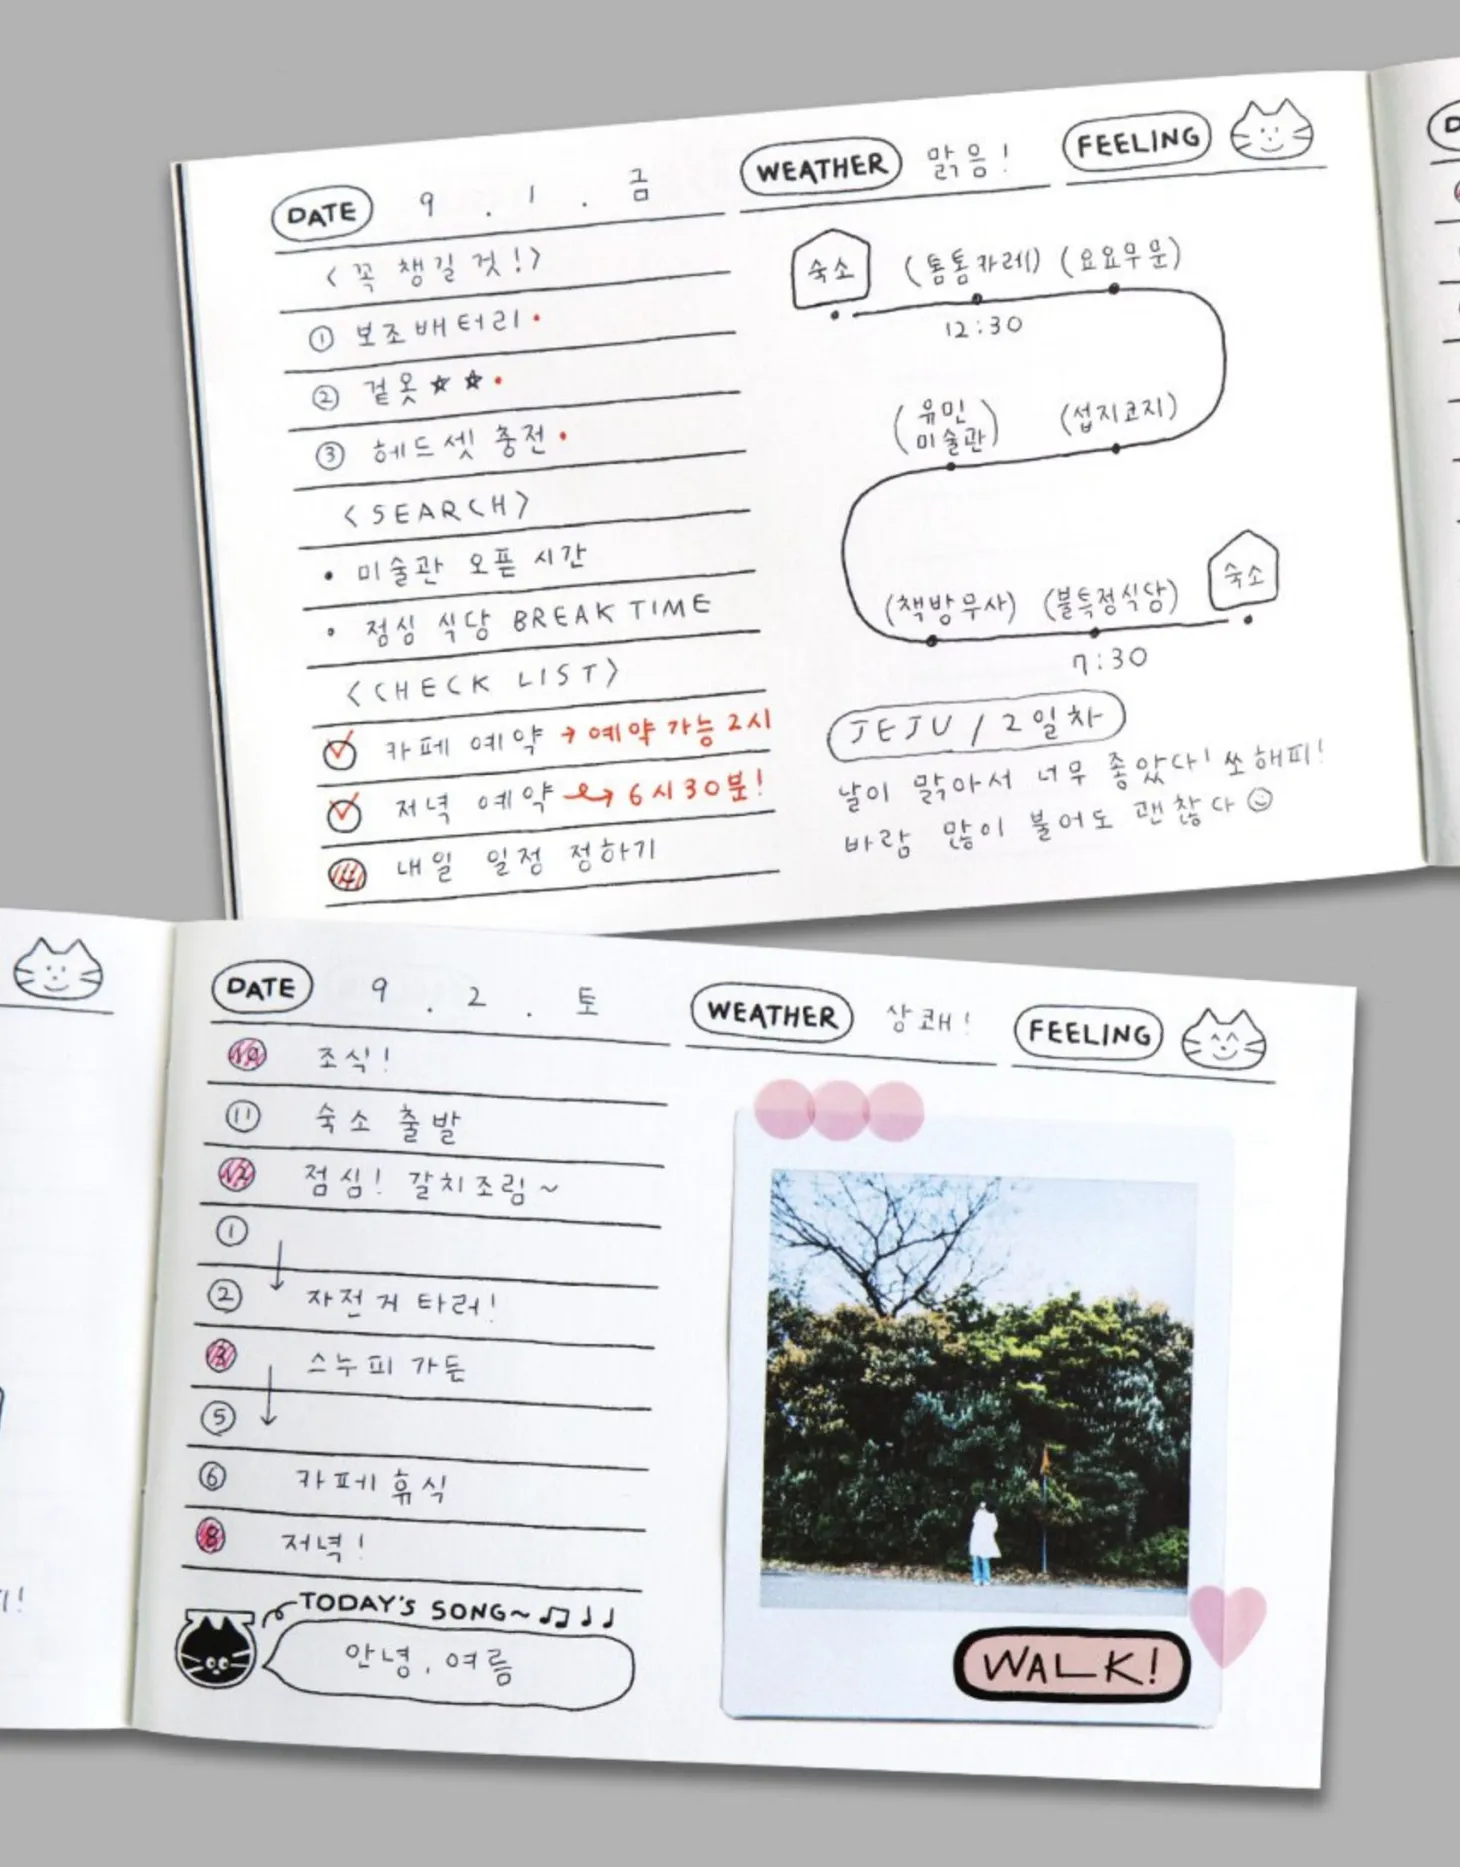 DATE 9 . 1 . 금
WEATHER 맑음!
FEELING
<꼭 챙길 것!>
① 보조배터리
② 겉옷
③ 헤드셋 충전
<SEARCH>
• 미술관 오픈 시간
• 점심 식당 BREAK TIME
<CHECK LIST>
카페 예약 → 예약 가능 2시
저녁 예약 → 6시 30분!
내일 일정 정하기
숙소 (톰톰카레) (요요무문)
12:30
(유민 미술관) (섭지코지)
(책방무사) (불특정식당) 숙소
7:30
JEJU / 2일차
날이 맑아서 너무 좋았다! 쏘해피!
바람 많이 불어도 괜찮다
DATE 9 . 2 . 토
WEATHER 상쾌!
FEELING
10 조식!
11 숙소 출발
12 점심! 갈치조림~
①
② 자전거 타러!
3 스누피가든
⑤
⑥ 카페 휴식
8 저녁!
TODAY'S SONG~
안녕, 여름
WALK!